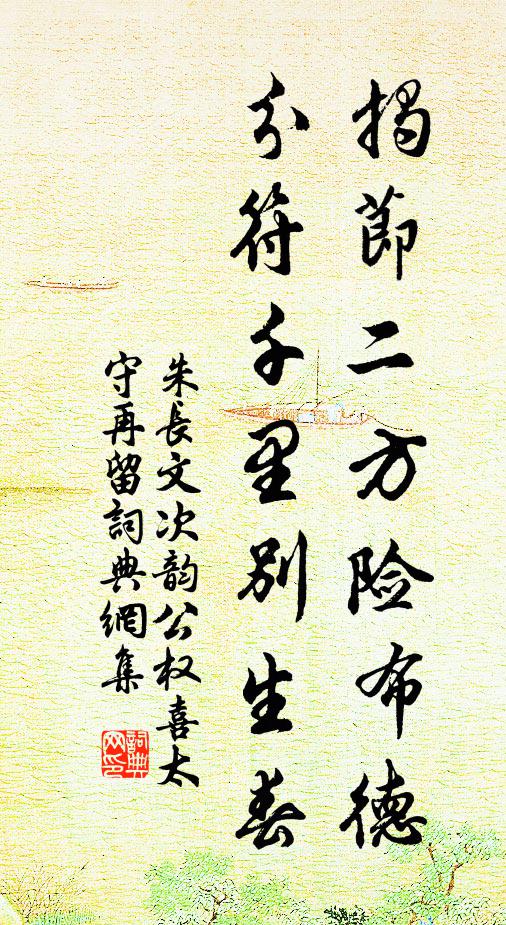 揭節二方险布德
分符千里别生春
朱長文次韵公权喜太
守再留詞典網集
詞典
网印